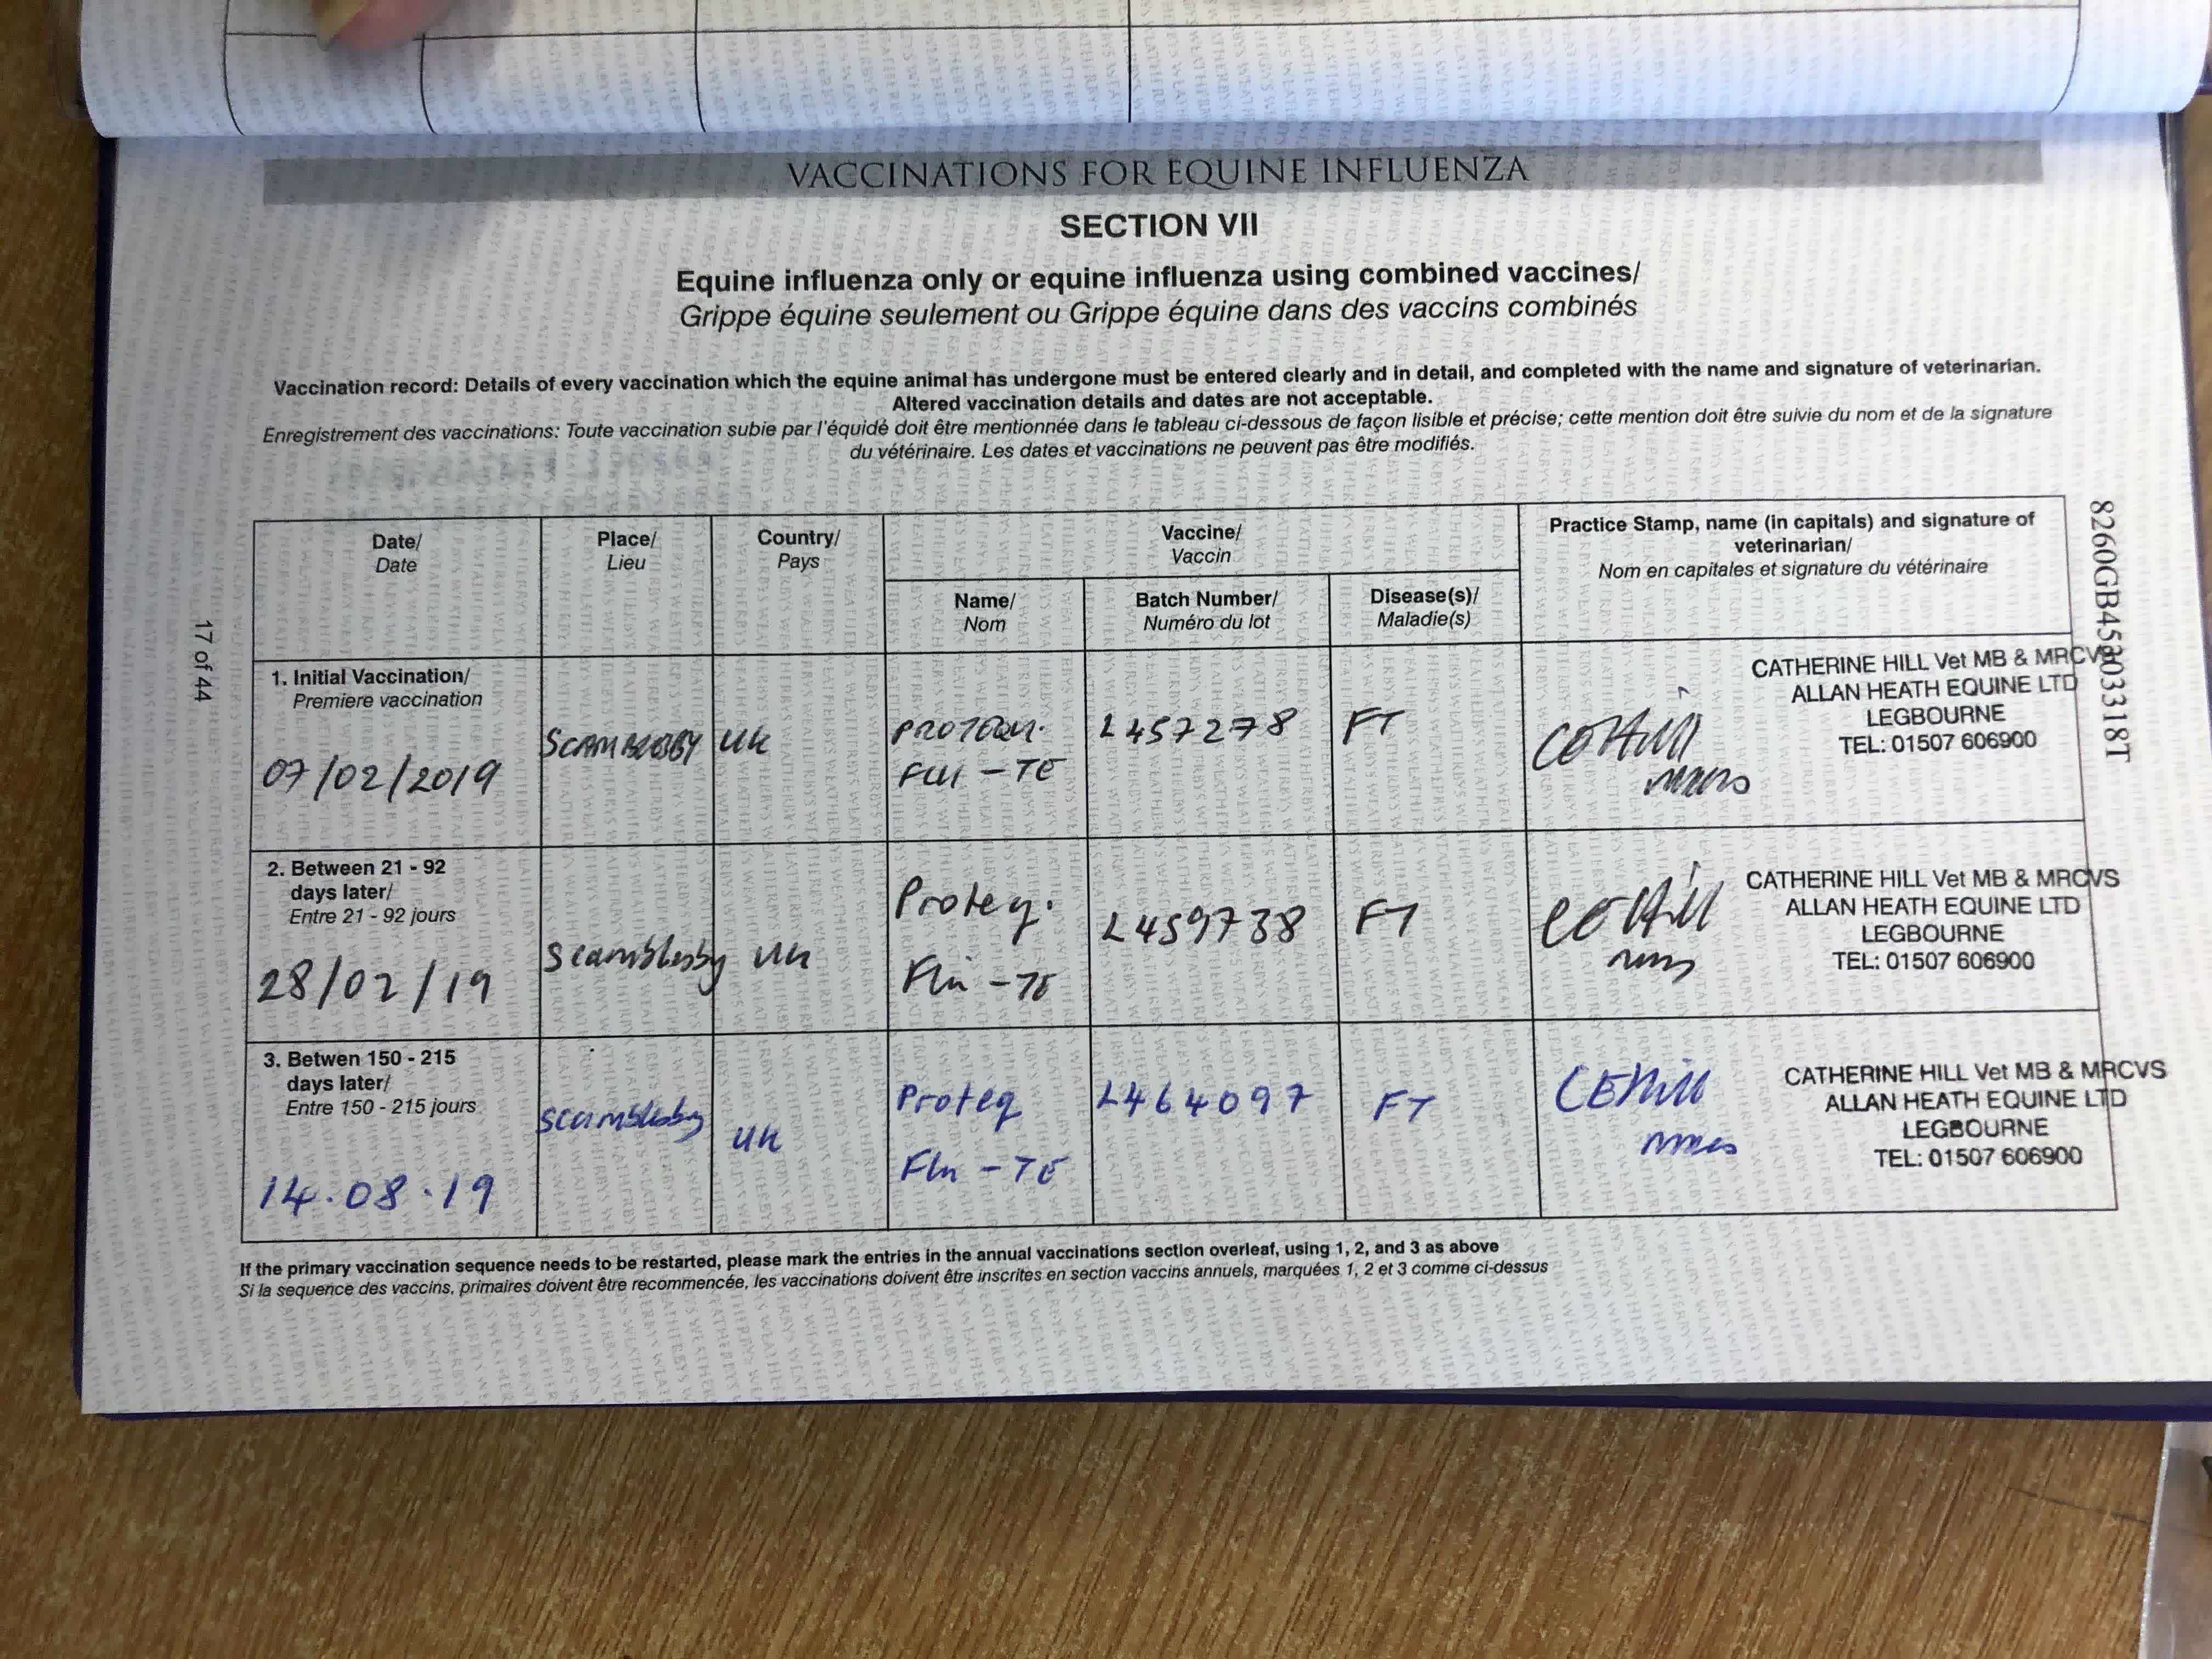 VACCINATIONS FOR EQUINE INFLUENZA
SECTION VII
Equine influenza only or equine influenza using combined vaccines/
Grippe équine seulement ou Grippe équine dans des vaccins combinés
Vaccination record: Details of every vaccination which the equine animal has undergone must be entered clearly and in detail, and completed with the name and signature of veterinarian.
Altered vaccination details and dates are not acceptable.
Enregistrement des vaccinations: Toute vaccination subie par l'équidé doit être mentionnée dans le tableau ci-dessous de façon lisible et précise; cette mention doit être suivie du nom et de la signature
du vétérinaire. Les dates et vaccinations ne peuvent pas être modifiés.
Date/
Date
Place/
Lieu
Country/
Pays
Vaccine/
Vaccin
Name/
Nom
Batch Number/
Numéro du lot
Disease(s)/
Maladie(s)
Practice Stamp, name (in capitals) and signature of
veterinarian/
Nom en capitales et signature du vétérinaire
1. Initial Vaccination/
Premiere vaccination
07/02/2019
SCAMBLESBY
UK
PROTEQ.
FLU - TE
L457278
FT
CATHERINE HILL Vet MB & MRCVS
ALLAN HEATH EQUINE LTD
LEGBOURNE
TEL: 01507 606900
2. Between 21 - 92
days later/
Entre 21 - 92 jours
28/02/19
Scamblesby
UK
Proteq.
Flu - TE
L459738
FT
CATHERINE HILL Vet MB & MRCVS
ALLAN HEATH EQUINE LTD
LEGBOURNE
TEL: 01507 606900
3. Betwen 150 - 215
days later/
Entre 150 - 215 jours
14.08.19
Scamblesby
UK
Proteq
Flu - TE
L464097
FT
CATHERINE HILL Vet MB & MRCVS
ALLAN HEATH EQUINE LTD
LEGBOURNE
TEL: 01507 606900
If the primary vaccination sequence needs to be restarted, please mark the entries in the annual vaccinations section overleaf, using 1, 2, and 3 as above
Si la sequence des vaccins, primaires doivent être recommencée, les vaccinations doivent être inscrites en section vaccins annuels, marquées 1, 2 et 3 comme ci-dessus
17 of 44